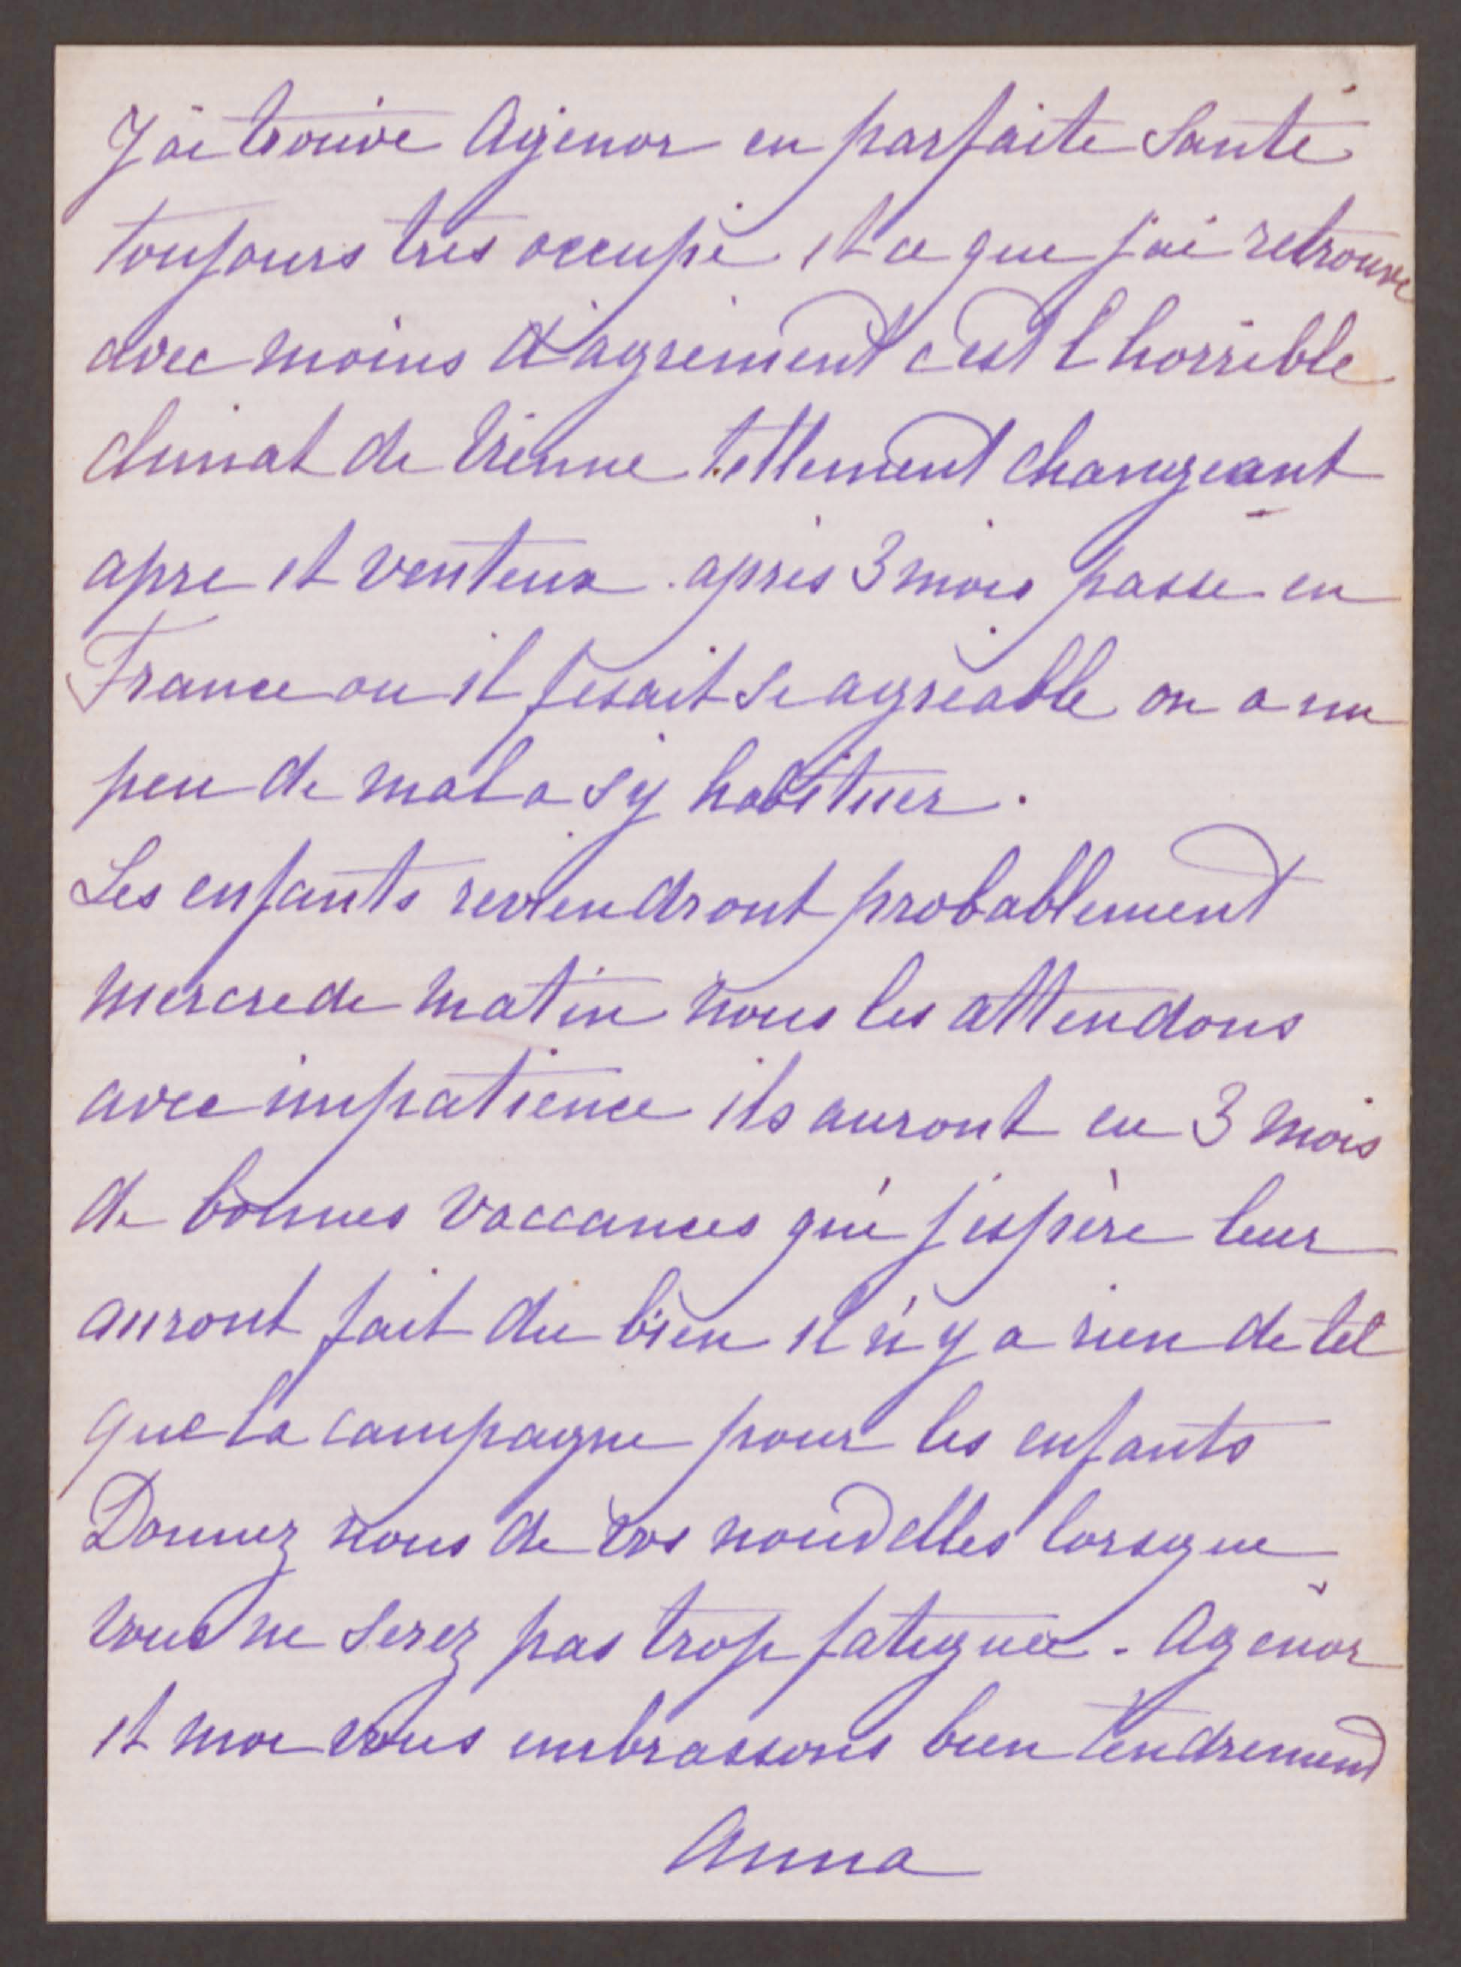 J'ai trouvé Agénor en parfaite santé
toujours très occupé et ce que j'ai retrouvé
avec moins d'agrément c'est l'horrible
climat de Vienne tellement changeant
apre et venteux. après 3 mois passé en
France ou il fesait si agréable on a un
peu de mal a s'y habituer.
Les enfants reviendront probablement
mercredi matin nous les attendons
avec impatience ils auront eu 3 mois
de bonnes vaccances qui j'espère leur
auront fait du bien il n'y a rien de tel
que la campagne pour les enfants
Donnez nous de vos nouvelles lorsque
vous ne serez pas trop fatiguée. Agénor
et moi vous embrassons bien tendrement
Anna